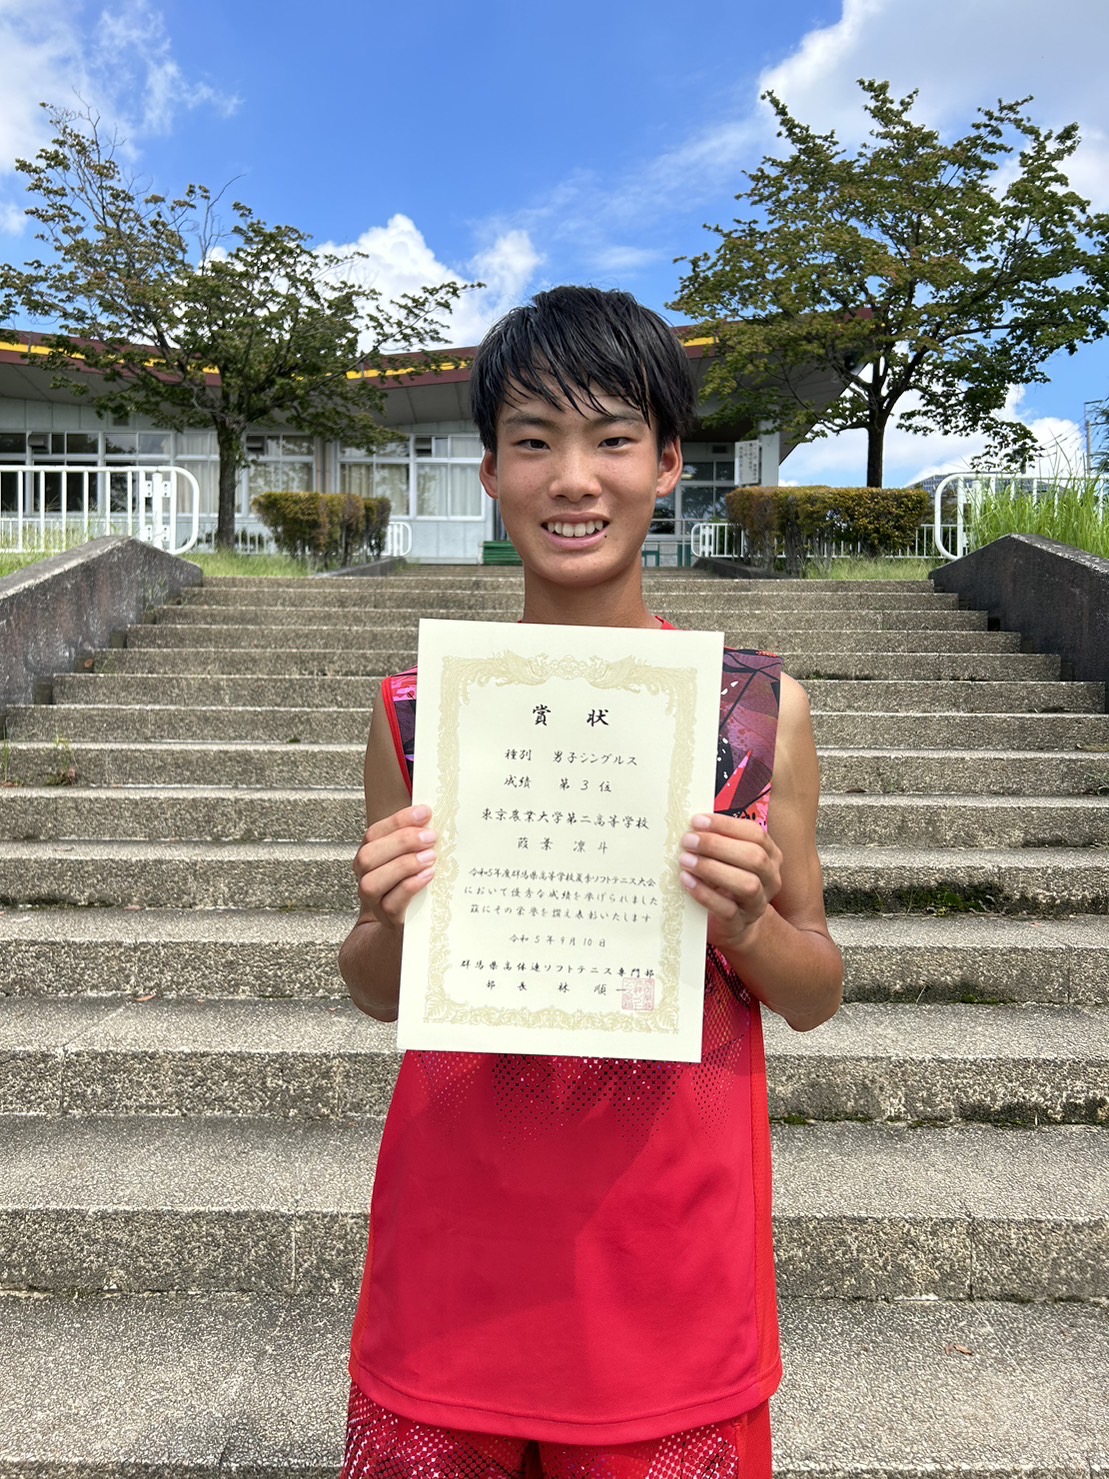 賞 状
種別 男子シングルス
成績 第3位
東京農業大学第二高等学校
葭葉 凛斗
令和5年度群馬県高等学校夏季ソフトテニス大会
において優秀な成績を挙げられました
茲にその栄誉を讃え表彰いたします
令和5年9月10日
群馬県高体連ソフトテニス専門部
部長 林 順一